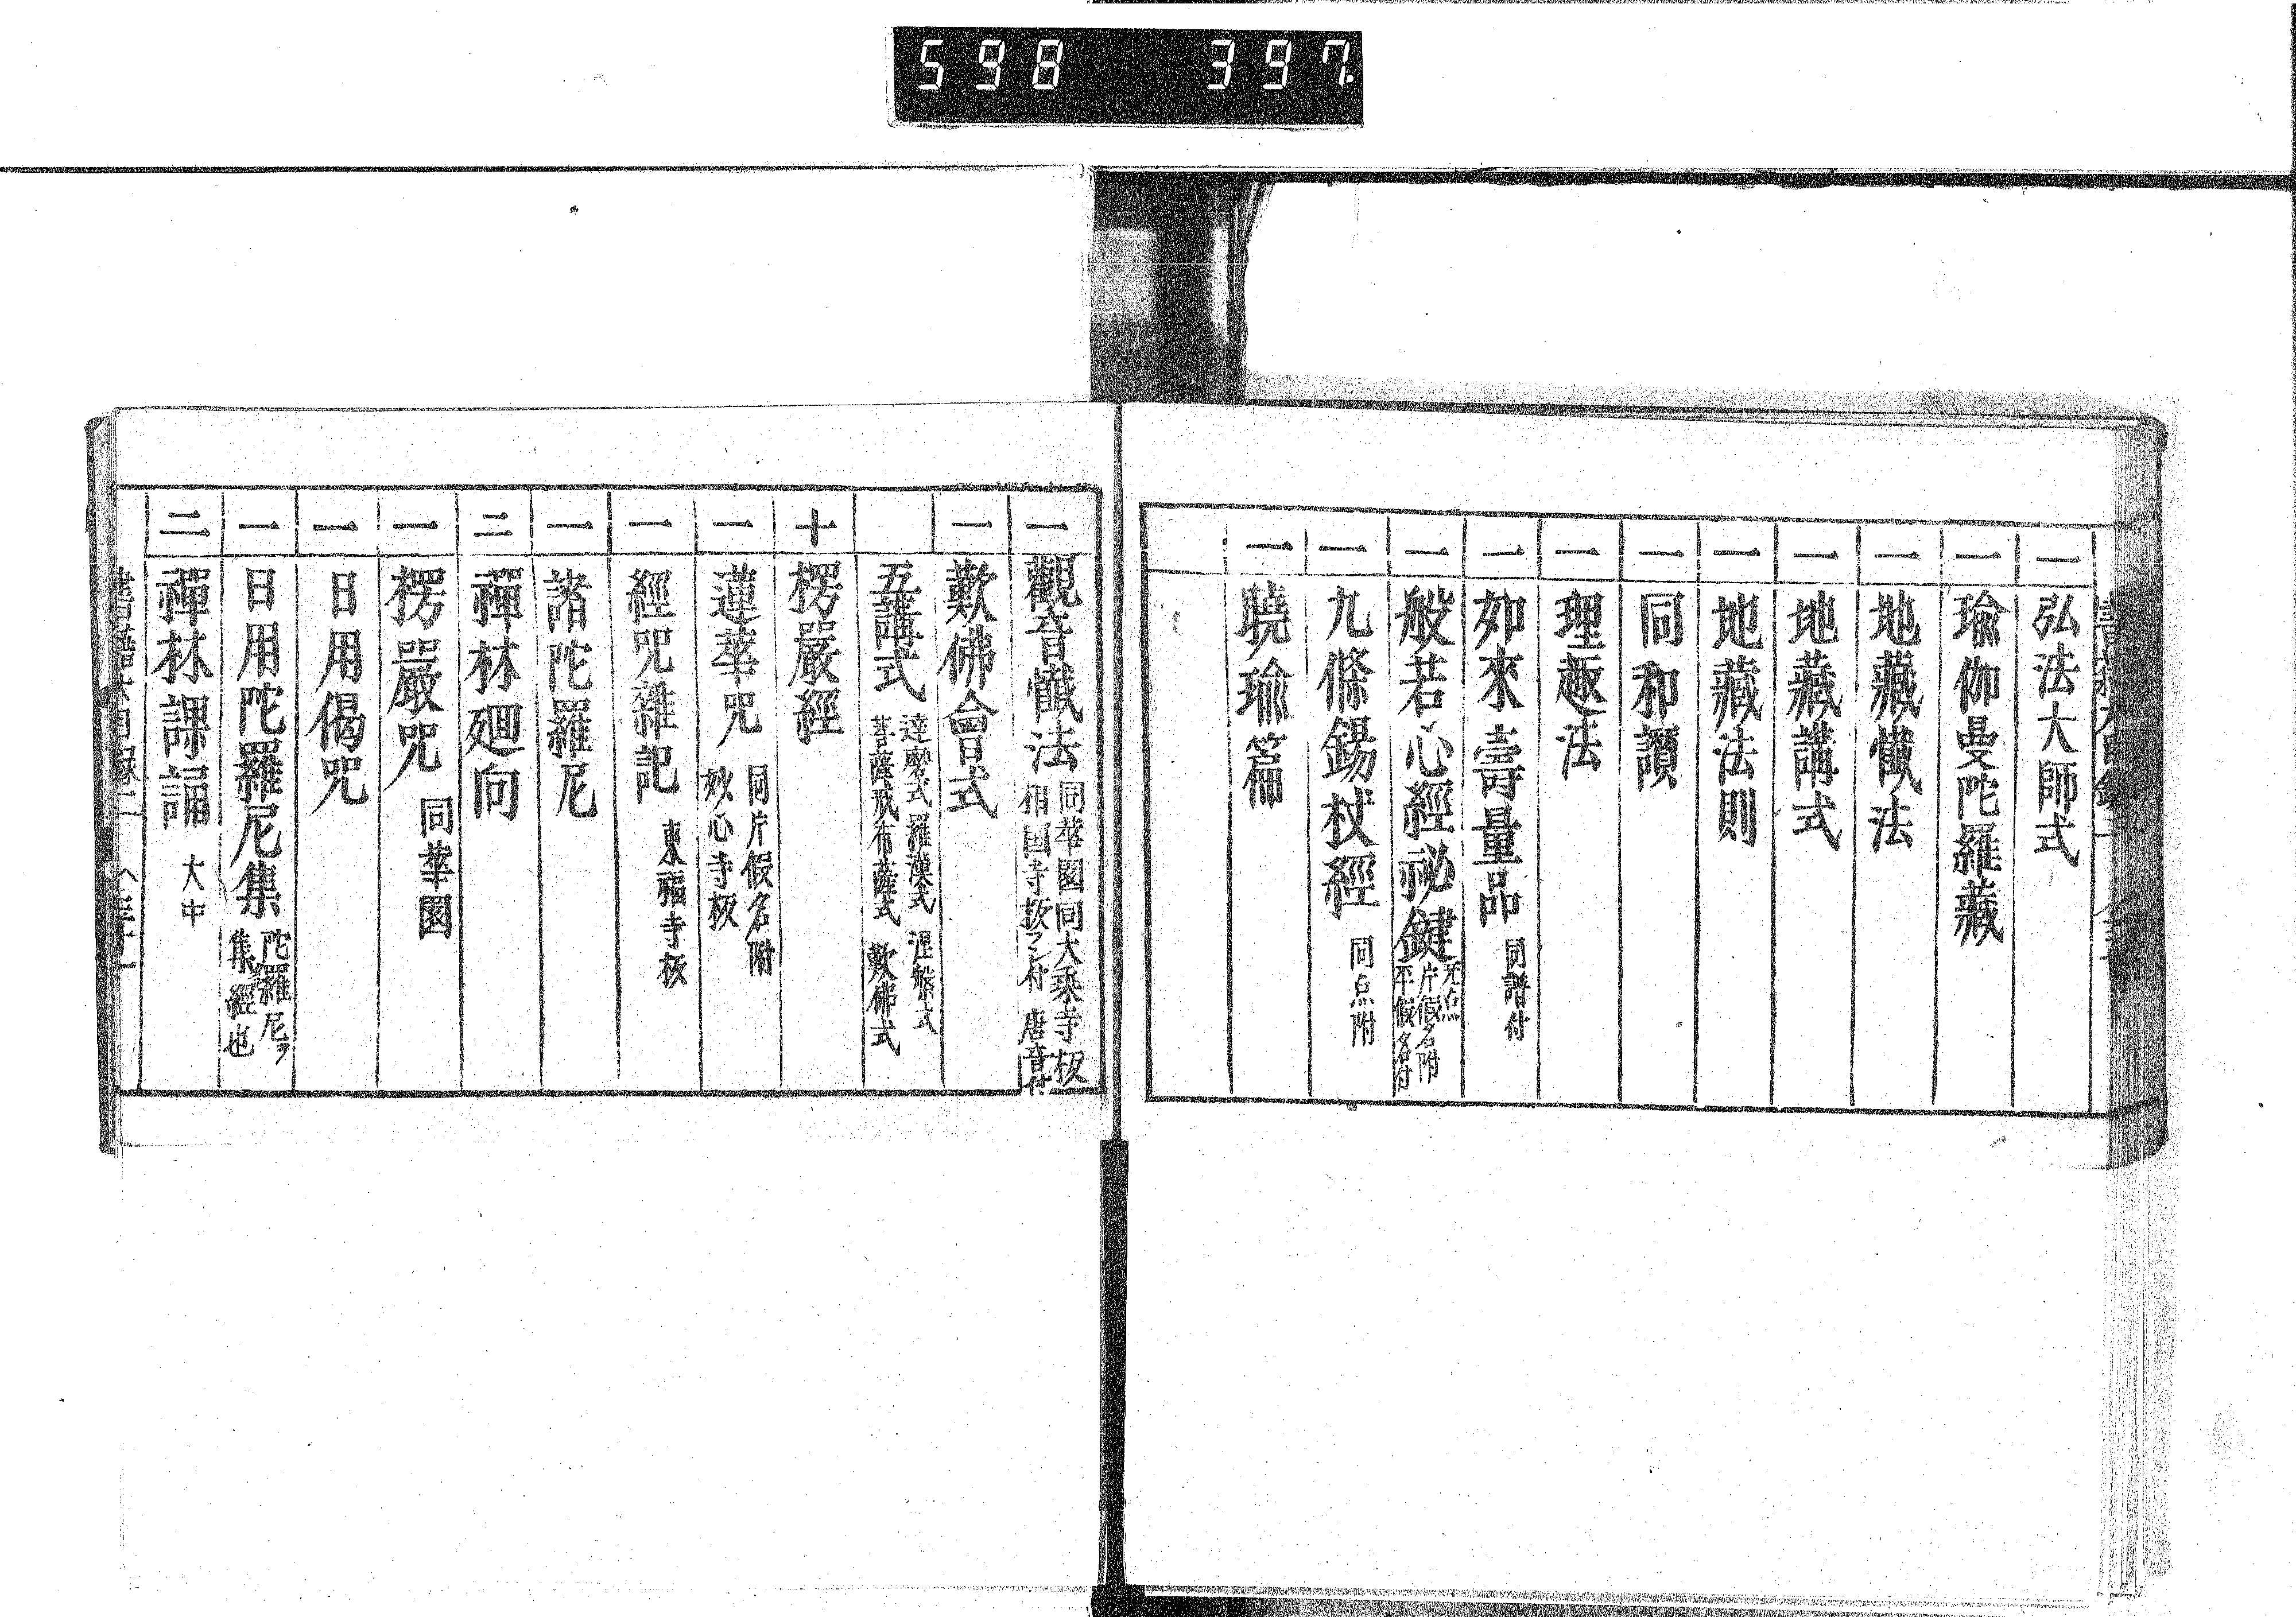 598 397
一 弘法大師式
一 瑜伽曼陀羅藏
一 地藏懺法
一 地藏講式
一 地藏法則
一 同和讃
一 理趣法
一 如來壽量品 同譜付
一 般若心經祕鍵 无点 片假名附 平假名付
一 九條錫杖經 同点附
一 驍瑜篇
一 觀音懺法 同葉園同大乘寺板 相國寺板フシ付 唐音付
一 歎佛會式
五講式 達磨式 羅漢式 涅槃式 菩薩戒布薩式 歎佛式
十 楞嚴經
一 蓮華咒 同片假名附 妙心寺板
一 經咒雜記 東福寺板
一 諸陀羅尼
二 禪林廻向
一 楞嚴咒 同葉園
一 日用偈咒
一 日用陀羅尼集 陀羅尼ヲ集經也
二 禪林課誦 大中